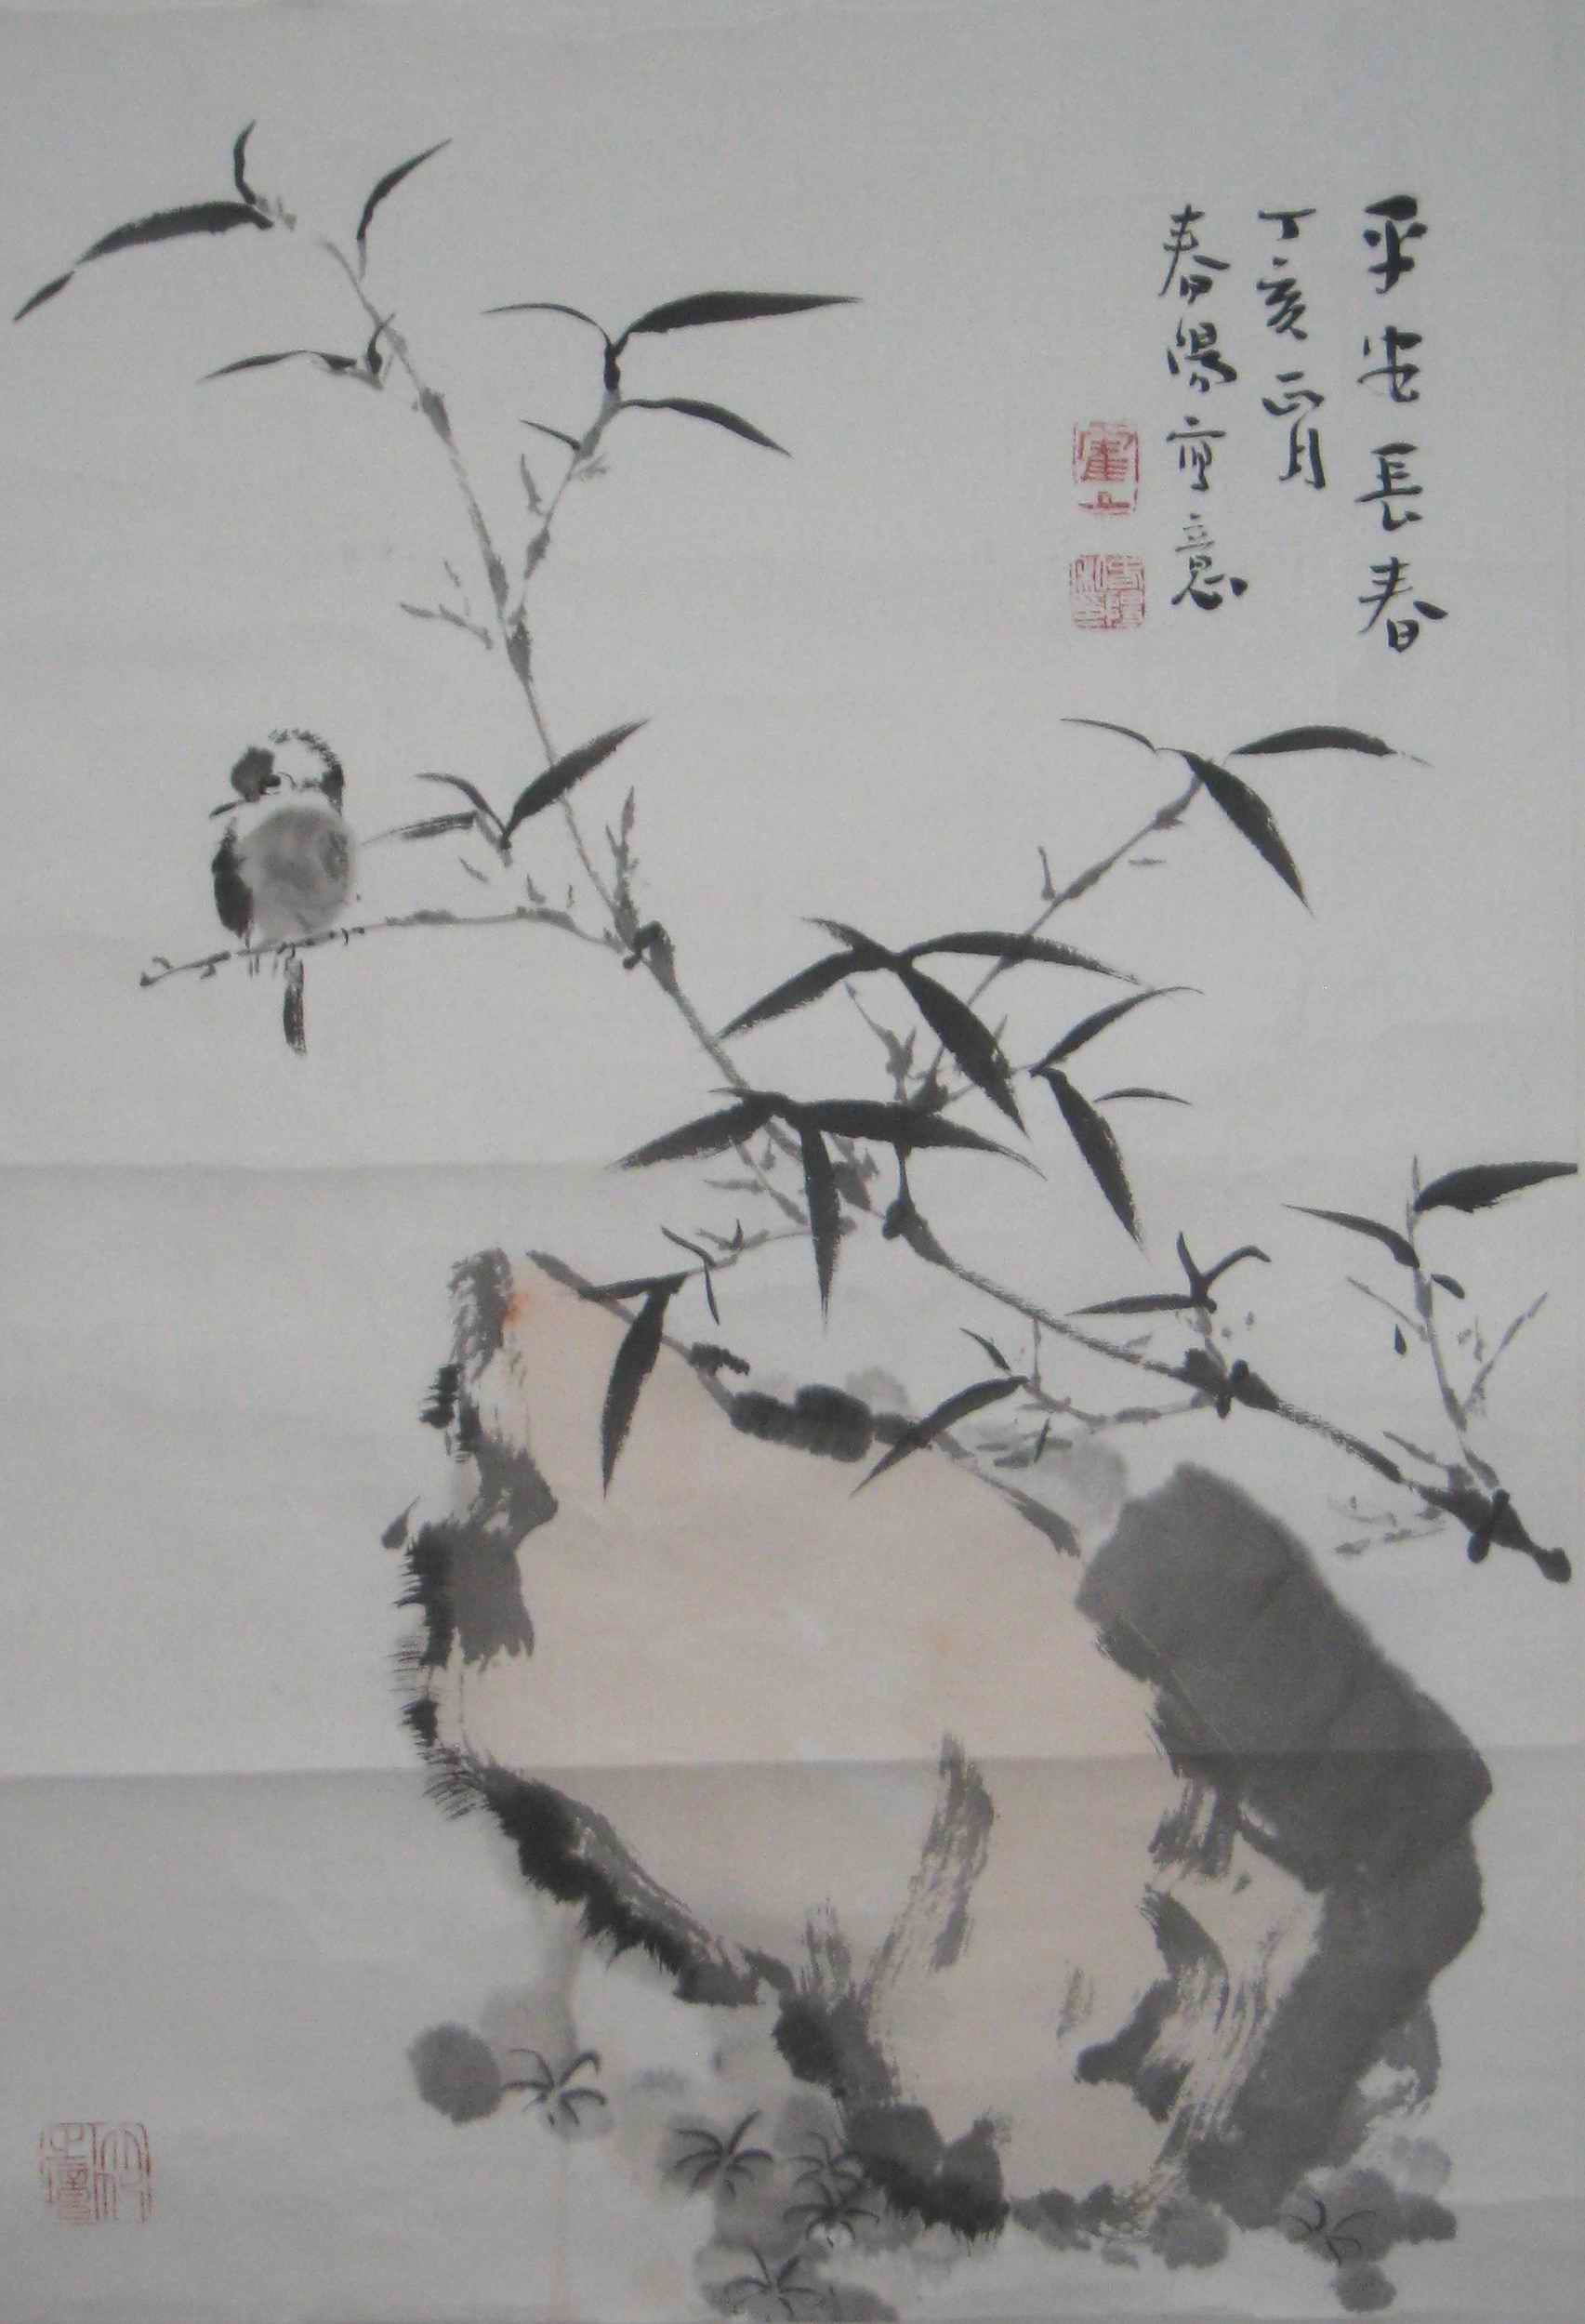 平安長春
丁亥正月
春陽寫意